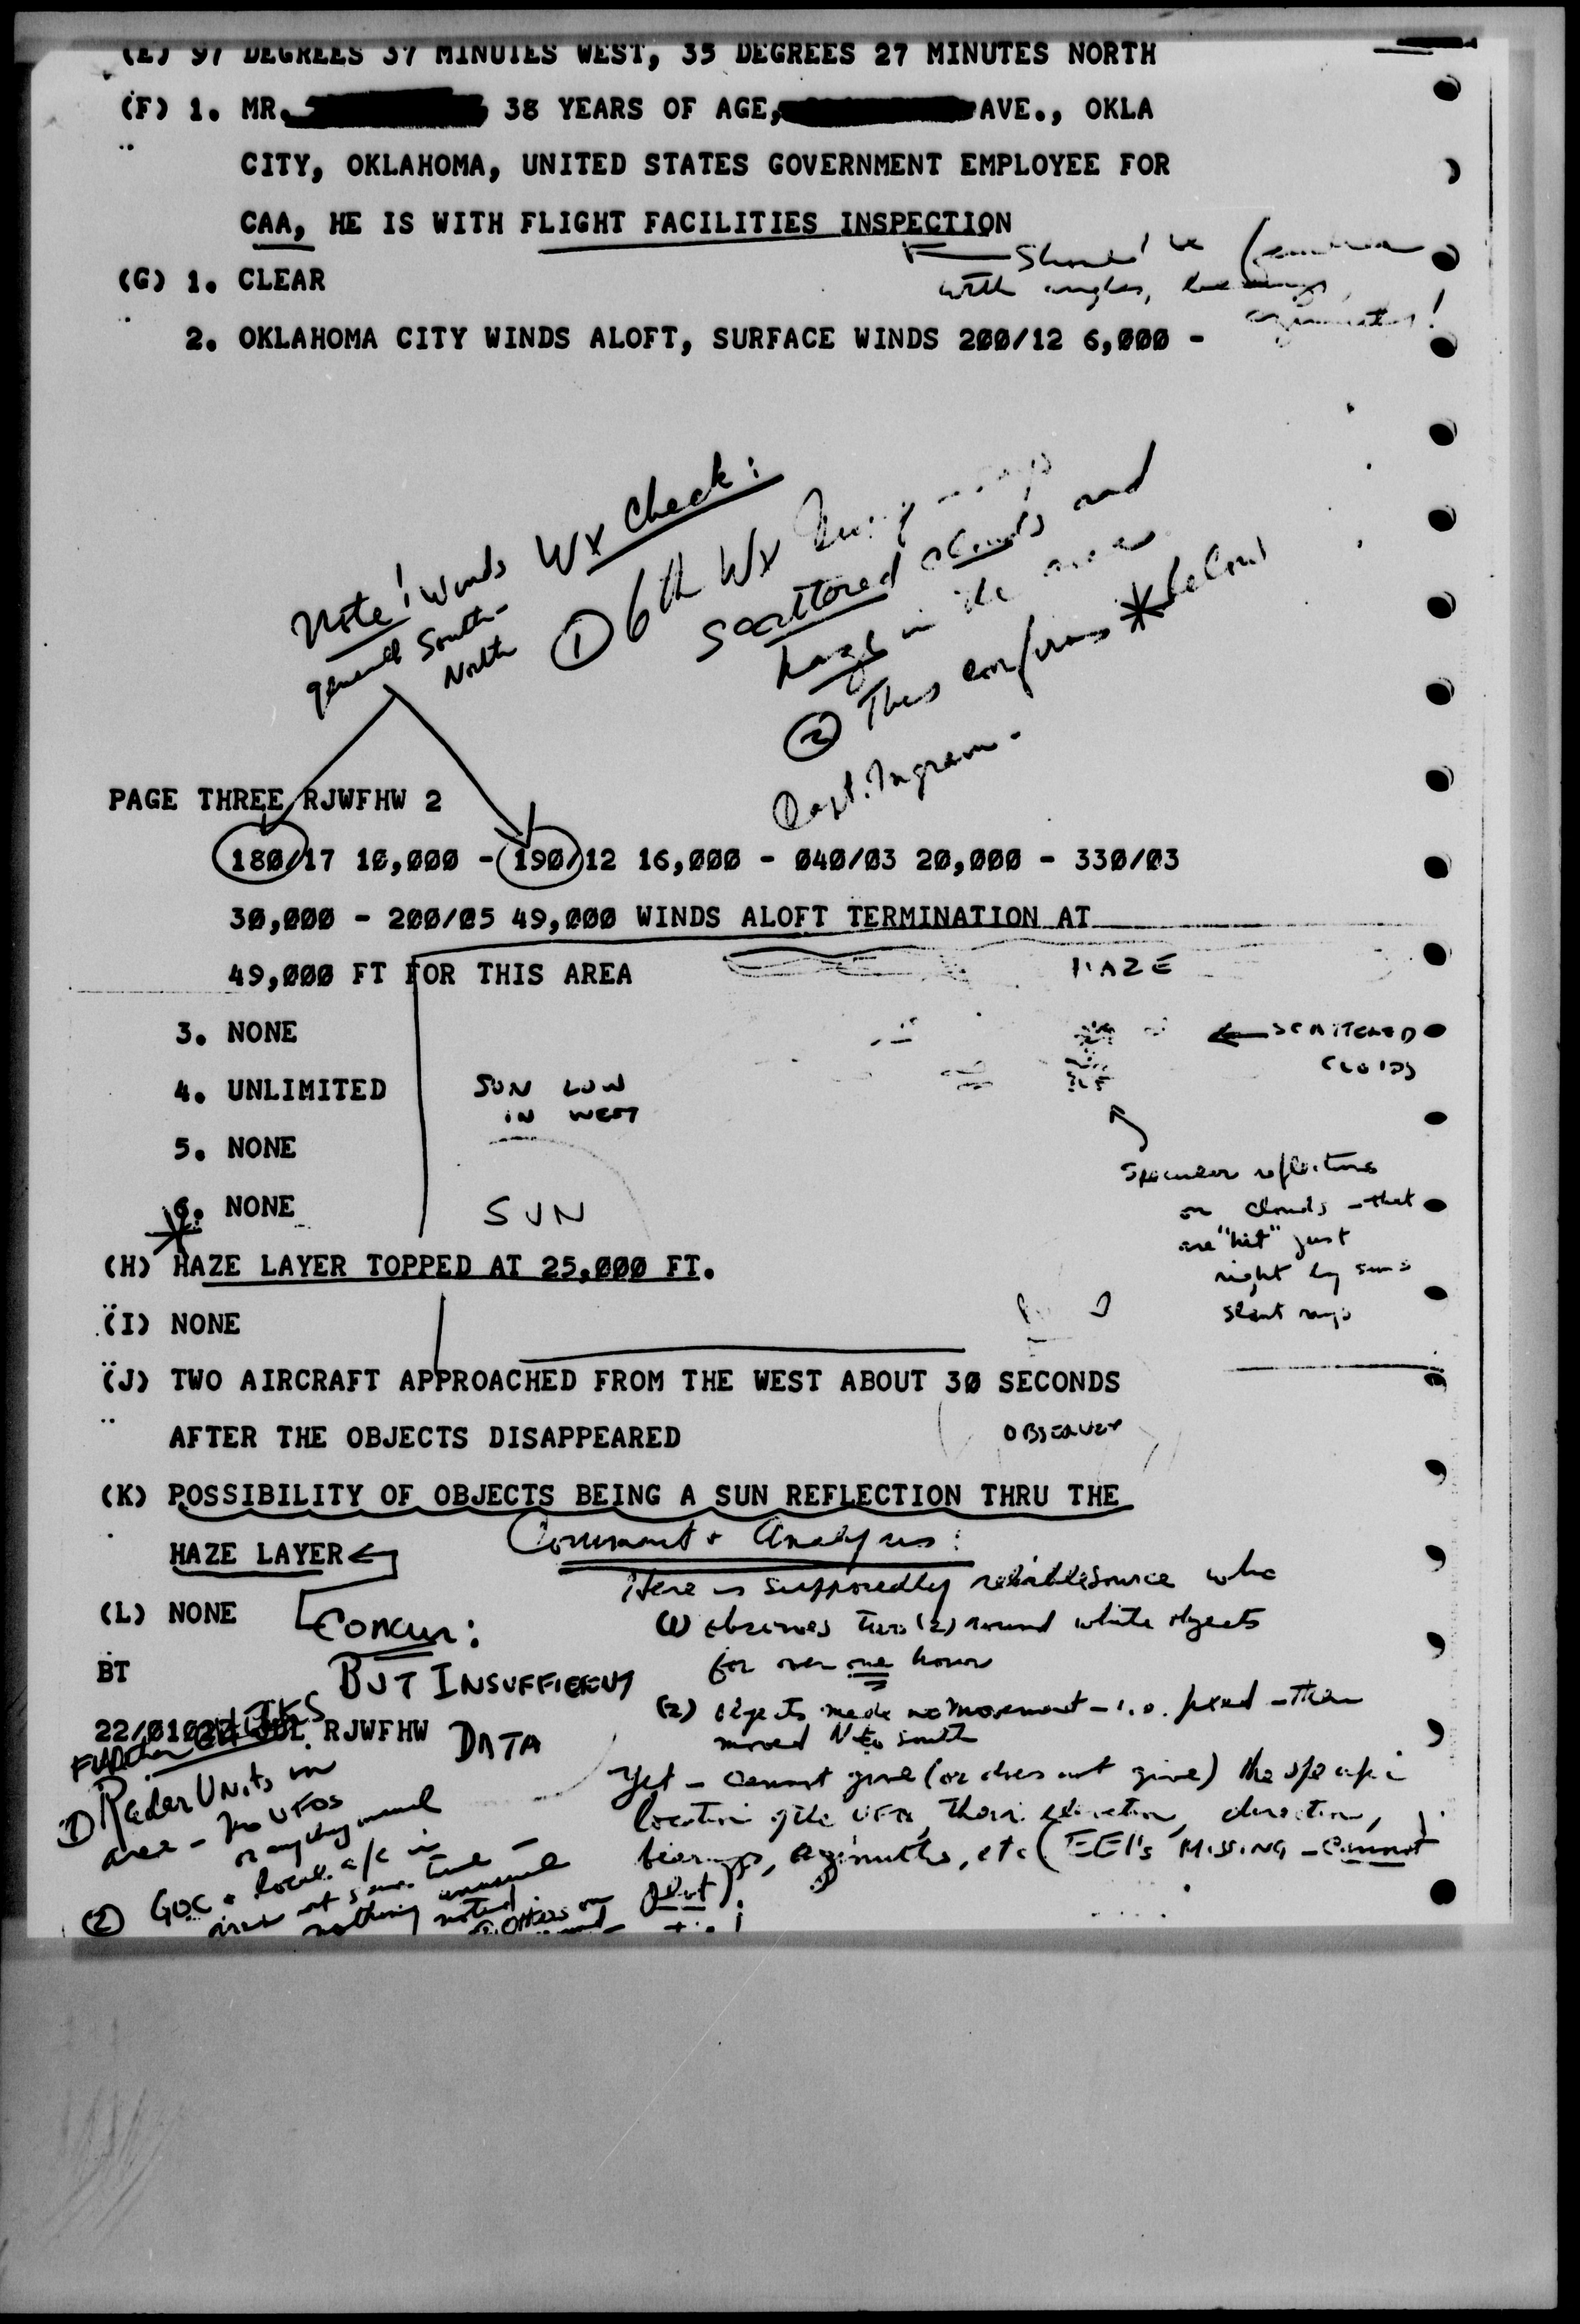 (E) 97 DEGREES 37 MINUTES WEST, 35 DEGREES 27 MINUTES NORTH
(F) 1. MR. 38 YEARS OF AGE, AVE., OKLA
CITY, OKLAHOMA, UNITED STATES GOVERNMENT EMPLOYEE FOR
CAA, HE IS WITH FLIGHT FACILITIES INSPECTION
should be
(G) 1. CLEAR
with angles, bearings,
azimuths!
2. OKLAHOMA CITY WINDS ALOFT, SURFACE WINDS 200/12 6,000 -
Note! Winds
general South-
North
Wx Check:
① 6th Wx
scattered clouds and
haze in the area
② This confirms * below
Capt. Ingram.
PAGE THREE RJWFHW 2
180/17 10,000 - 190/12 16,000 - 040/03 20,000 - 330/03
30,000 - 200/05 49,000 WINDS ALOFT TERMINATION AT
49,000 FT FOR THIS AREA
HAZE
3. NONE
SCATTERED
CLOUDS
4. UNLIMITED
SUN LOW
IN WEST
5. NONE
Specular reflections
on clouds - that
are "hit" just
right by sun's
slant rays
6. NONE
SUN
* (H) HAZE LAYER TOPPED AT 25,000 FT.
(I) NONE
(J) TWO AIRCRAFT APPROACHED FROM THE WEST ABOUT 30 SECONDS
AFTER THE OBJECTS DISAPPEARED
OBSERVER
(K) POSSIBILITY OF OBJECTS BEING A SUN REFLECTION THRU THE
HAZE LAYER
Comment & Analysis:
Here is supposedly reliable source who
(L) NONE
Concur:
(1) observes two (2) round white objects
for over one hour
BT
BUT INSUFFICIENT
DATA
(2) objects made no movement - i.e. fixed - then
moved N to south
22/0102Z JUL RJWFHW
Further
Yet - cannot give (or does not give) the specific
location of the UFOs, their elevation, direction,
bearings, azimuths, etc (EEI's MISSING - Cannot
plot)!
① Radar Units in
area - no UFOs
or anything unusual
② GOC & local a/c in
area at same time -
nothing unusual
noted.
others on